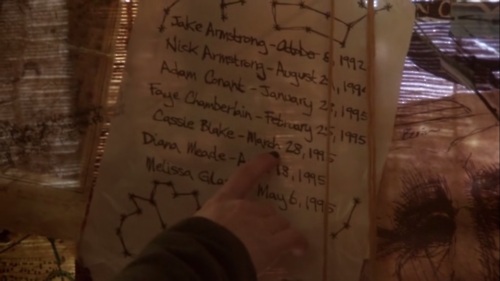 Jake Armstrong - October 8, 1992
Nick Armstrong - August 2
Adam Conant - January 2 , 1995
Faye Chamberlain - February 25, 1995
Cassie Blake - March 28, 1995
Diana Meade - A 18, 1995
Melissa Gla May 6, 1995